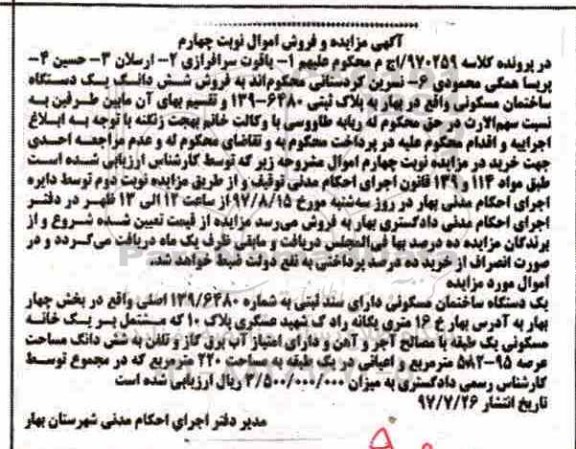 آگهی مزایده و فروش اموال نوبت چهارم
در پرونده کلاسه ۹۷۰۲۵۹/اج م محکوم علیهم ۱- یاقوت سرافرازی ۲- ارسلان ۳- حسین ۴-
پریسا همگی محمودی ۶- نسرین کردستانی محکوم‌اند به فروش شش دانگ یک دستگاه
ساختمان مسکونی واقع در بهار به پلاک ثبتی ۶۴۸۰-۱۳۹ و تقسیم بهای آن مابین طرفین به
نسبت سهم‌الارث در حق محکوم له ربابه طاووسی با وکالت خانم بهجت زنگنه با توجه به ابلاغ
اجراییه و اقدام محکوم علیه در پرداخت محکوم به و تقاضای محکوم له و عدم مراجعه احدی
جهت خرید در مزایده نوبت چهارم اموال مشروحه زیر که توسط کارشناس ارزیابی شده است
طبق مواد ۱۱۳ و ۱۳۹ قانون اجرای احکام مدنی توقیف و از طریق مزایده نوبت دوم توسط دایره
اجرای احکام مدنی بهار در روز سه‌شنبه مورخ ۹۷/۸/۱۵ از ساعت ۱۲ الی ۱۳ ظهر در دفتر
اجرای احکام مدنی دادگستری بهار به فروش می‌رسد مزایده از قیمت تعیین شده شروع و از
برندگان مزایده ده درصد بها فی‌المجلس دریافت و مابقی ظرف یک ماه دریافت می‌گردد و در
صورت انصراف از خرید ده درصد پرداختی به نفع دولت ضبط خواهد شد.
اموال مورد مزایده
یک دستگاه ساختمان مسکونی دارای سند ثبتی به شماره ۱۳۹/۶۴۸۰ اصلی واقع در بخش چهار
بهار به آدرس بهار خ ۱۶ متری یگانه راد ک شهید عسکری پلاک ۱۰ که مشتمل بر یک خانه
مسکونی یک طبقه با مصالح آجر و آهن و دارای امتیاز آب برق گاز و تلفن به شش دانگ مساحت
عرصه ۹۵-۵۸۲ مترمربع و اعیانی در یک طبقه به مساحت ۲۲۰ مترمربع که در مجموع توسط
کارشناس رسمی دادگستری به میزان ۳/۵۰۰/۰۰۰/۰۰۰ ریال ارزیابی شده است
تاریخ انتشار ۹۷/۷/۲۶
مدیر دفتر اجرای احکام مدنی شهرستان بهار